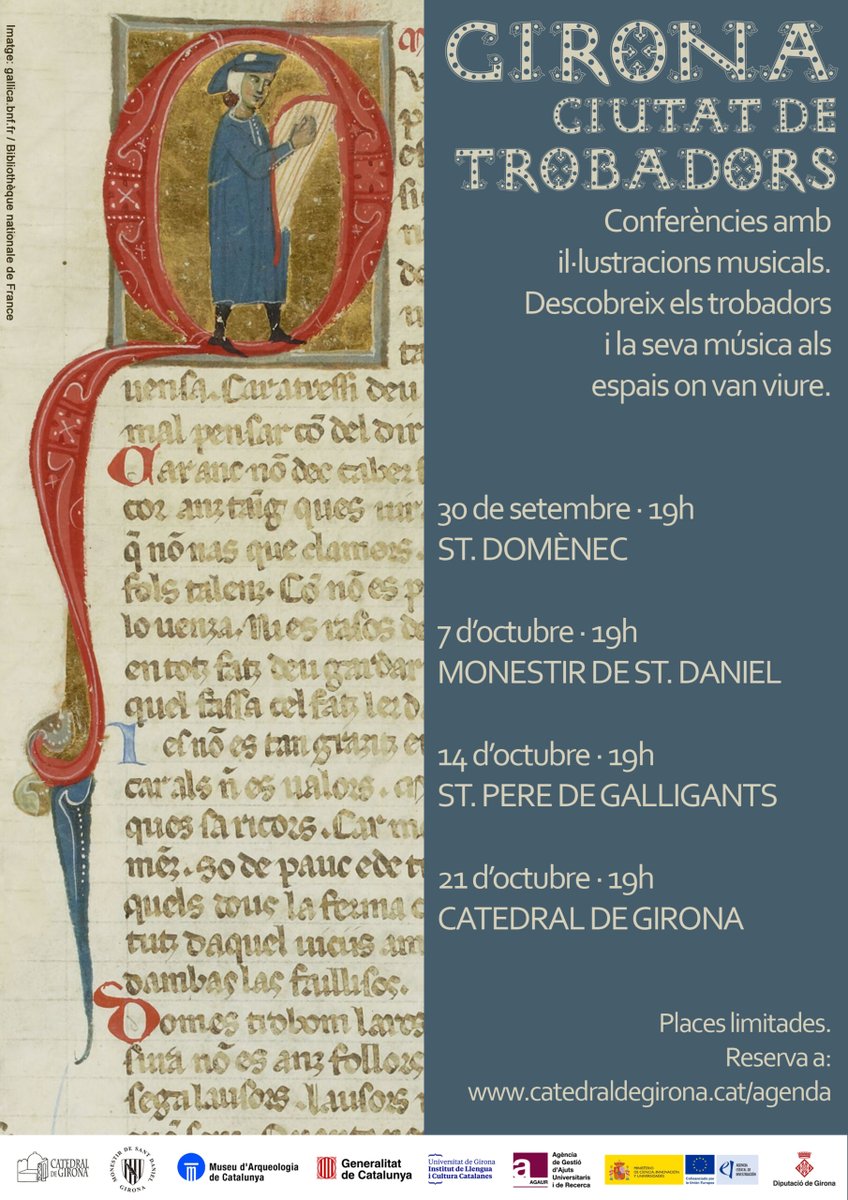 Imatge: gallica.bnf.fr / Bibliothèque nationale de France
GIRONA
CIUTAT DE
TROBADORS
Conferències amb
il·lustracions musicals.
Descobreix els trobadors
i la seva música als
espais on van viure.
30 de setembre · 19h
ST. DOMÈNEC
7 d'octubre · 19h
MONESTIR DE ST. DANIEL
14 d'octubre · 19h
ST. PERE DE GALLIGANTS
21 d'octubre · 19h
CATEDRAL DE GIRONA
Places limitades.
Reserva a:
www.catedraldegirona.cat/agenda
uensa. Car atressi deu
mal pensar cō del dir
Car anc nō dec caber
cor anz taīg ques
q̄ nō nas que clamors.
fols talenz. Cō nō es
lo uenza. Ni es rasos de
en totz fatz deu gardar
quel fassa cel fatz
es nō es tan granz
car als n̄ es ualors.
ques sa ricors. Car
mēz. so de pauc e de
quels dous la ferma
tutz daquel uicis
dambas las
nō es anz follors
lausors
CATEDRAL
DE GIRONA
MONESTIR DE SANT DANIEL
GIRONA
Museu d'Arqueologia
de Catalunya
Generalitat
de Catalunya
Universitat de Girona
Institut de Llengua
i Cultura Catalanes
AGAUR
Agència
de Gestió
d'Ajuts
Universitaris
i de Recerca
MINISTERIO
DE CIENCIA, INNOVACIÓN
Y UNIVERSIDADES
Cofinanciado por
la Unión Europea
AGENCIA
ESTATAL DE
INVESTIGACIÓN
Diputació de Girona